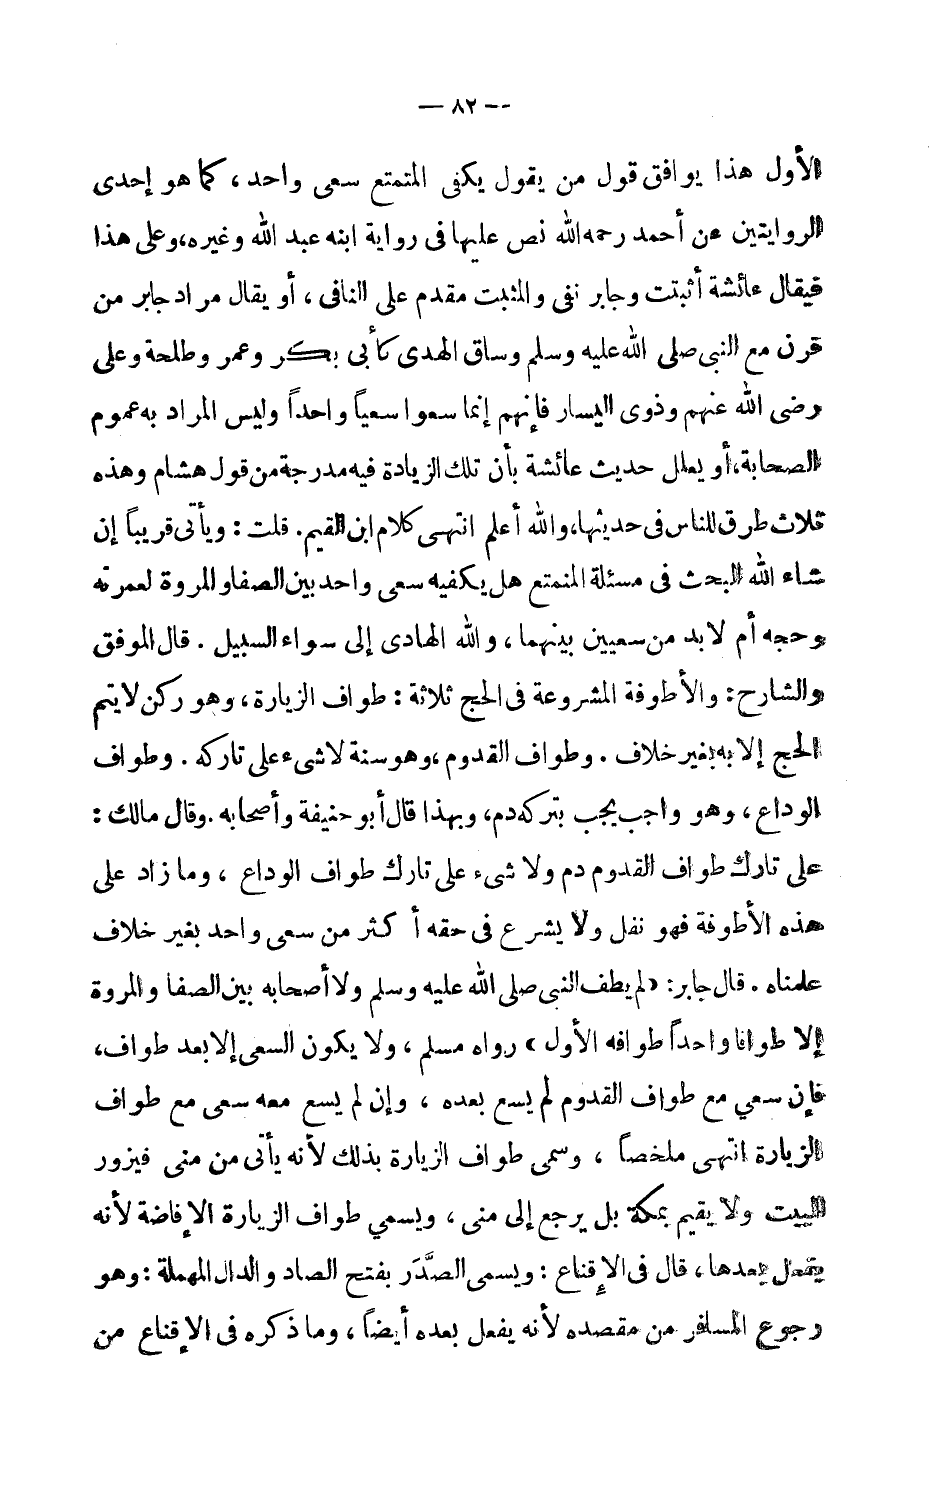 -- ٨٢ —
الأول هذا يوافق قول من يقول يكفى المتمتع سعى واحد ، كما هو إحدى
الروايتين عن أحمد رحمه الله نص عليها فى رواية ابنه عبد الله وغيره، وعلى هذا
فيقال عائشة أثبتت وجابر نفى والمثبت مقدم على النافى ، أو يقال مراد جابر من
قرن مع النبى صلى الله عليه وسلم وساق الهدى كأبى بكر وعمر وطلحة وعلى
رضى الله عنهم وذوى اليسار فإنهم إنما سعوا سعياً واحداً وليس المراد به عموم
الصحابة، أو يعلل حديث عائشة بأن تلك الزيادة فيه مدرجة من قول هشام وهذه
ثلاث طرق للناس فى حديثها، والله أعلم انتهى كلام ابن القيم. قلت : ويأتى قريباً إن
شاء الله البحث فى مسئلة المتمتع هل يكفيه سعى واحد بين الصفا والمروة لعمرته
وحجه أم لابد من سعيين بينهما ، والله الهادى إلى سواء السبيل . قال الموفق
والشارح: والأطوفة المشروعة فى الحج ثلاثة : طواف الزيارة، وهو ركن لا يتم
الحج إلا به بغير خلاف . وطواف القدوم ،وهو سنة لا شىء على تاركه . وطواف
الوداع ، وهو واجب يجب بتركه دم، وبهذا قال أبو حنيفة وأصحابه .وقال مالك :
على تارك طواف القدوم دم ولا شىء على تارك طواف الوداع ، وما زاد على
هذه الأطوفة فهو نفل ولا يشرع فى حقه أكثر من سعى واحد بغير خلاف
علمناه . قال جابر: «لم يطف النبى صلى الله عليه وسلم ولا أصحابه بين الصفا والمروة
إلا طوافا واحداً طوافه الأول » رواه مسلم ، ولا يكون السعى إلا بعد طواف،
فإن سعي مع طواف القدوم لم يسع بعده ، وإن لم يسع معه سعى مع طواف
الزيارة انتهى ملخصاً ، وسمى طواف الزيارة بذلك لأنه يأتى من منى فيزور
البيت ولا يقيم بمكة بل يرجع إلى منى ، ويسمي طواف الزيارة الإفاضة لأنه
يفعل بعدها ، قال فى الإقناع : ويسمى الصَّدَر بفتح الصاد والدال المهملة : وهو
رجوع المسافر من مقصده لأنه يفعل بعده أيضاً ، وما ذكره فى الاقناع من